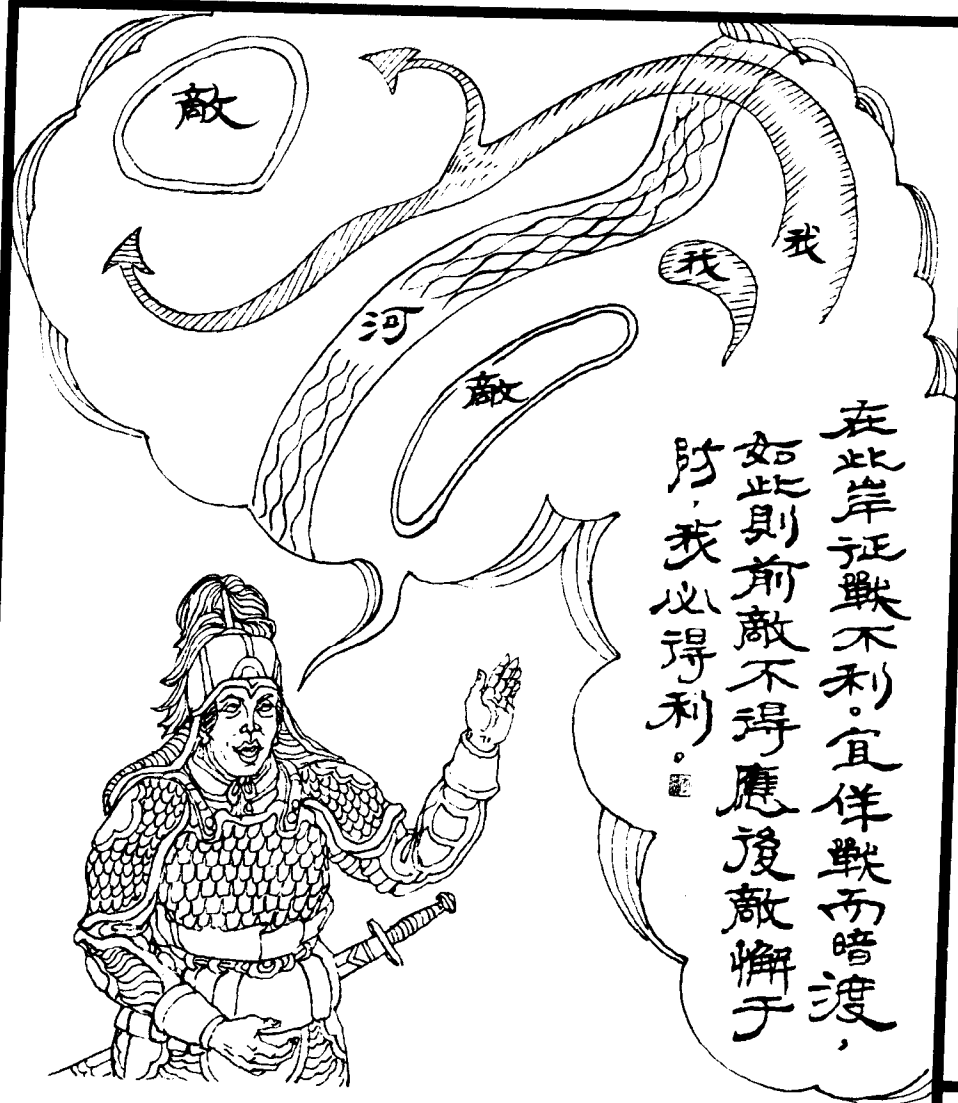 敵
我
我
河
敵
在此岸征戰不利。宜佯戰而暗渡，
如此則前敵不得應後敵懈于
防，我必得利。